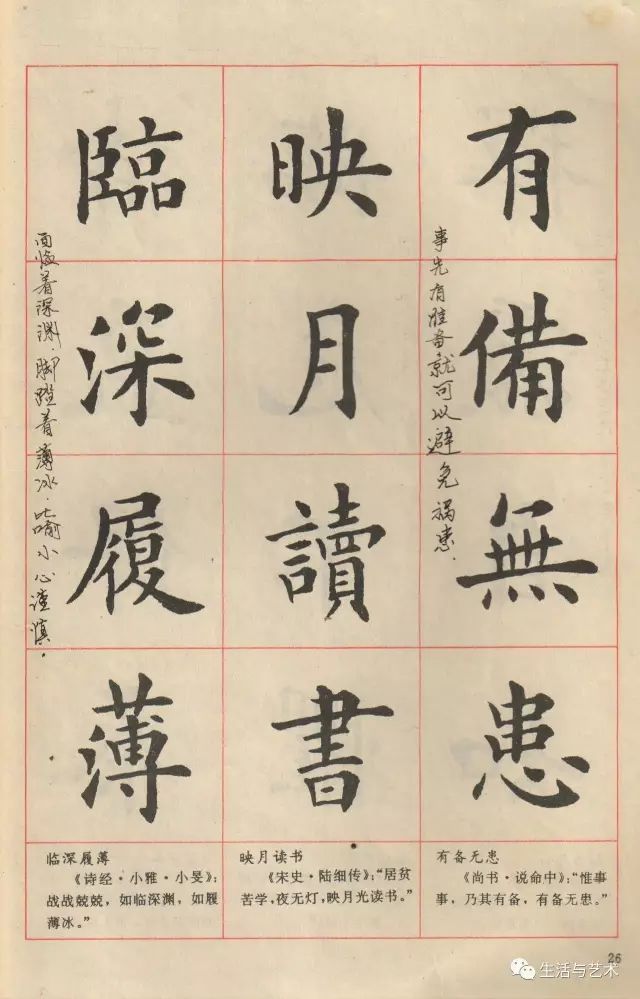 有備無患
事先有准备就可以避免祸患.
映月讀書
臨深履薄
面临着深渊.脚蹬着薄冰.比喻小心谨慎.
有备无患
《尚书·说命中》：“惟事
事，乃其有备，有备无患。”
映月读书
《宋史·陆细传》：“居贫
苦学，夜无灯，映月光读书。”
临深履薄
《诗经·小雅·小旻》：
战战兢兢，如临深渊，如履
薄冰。”
26
生活与艺术